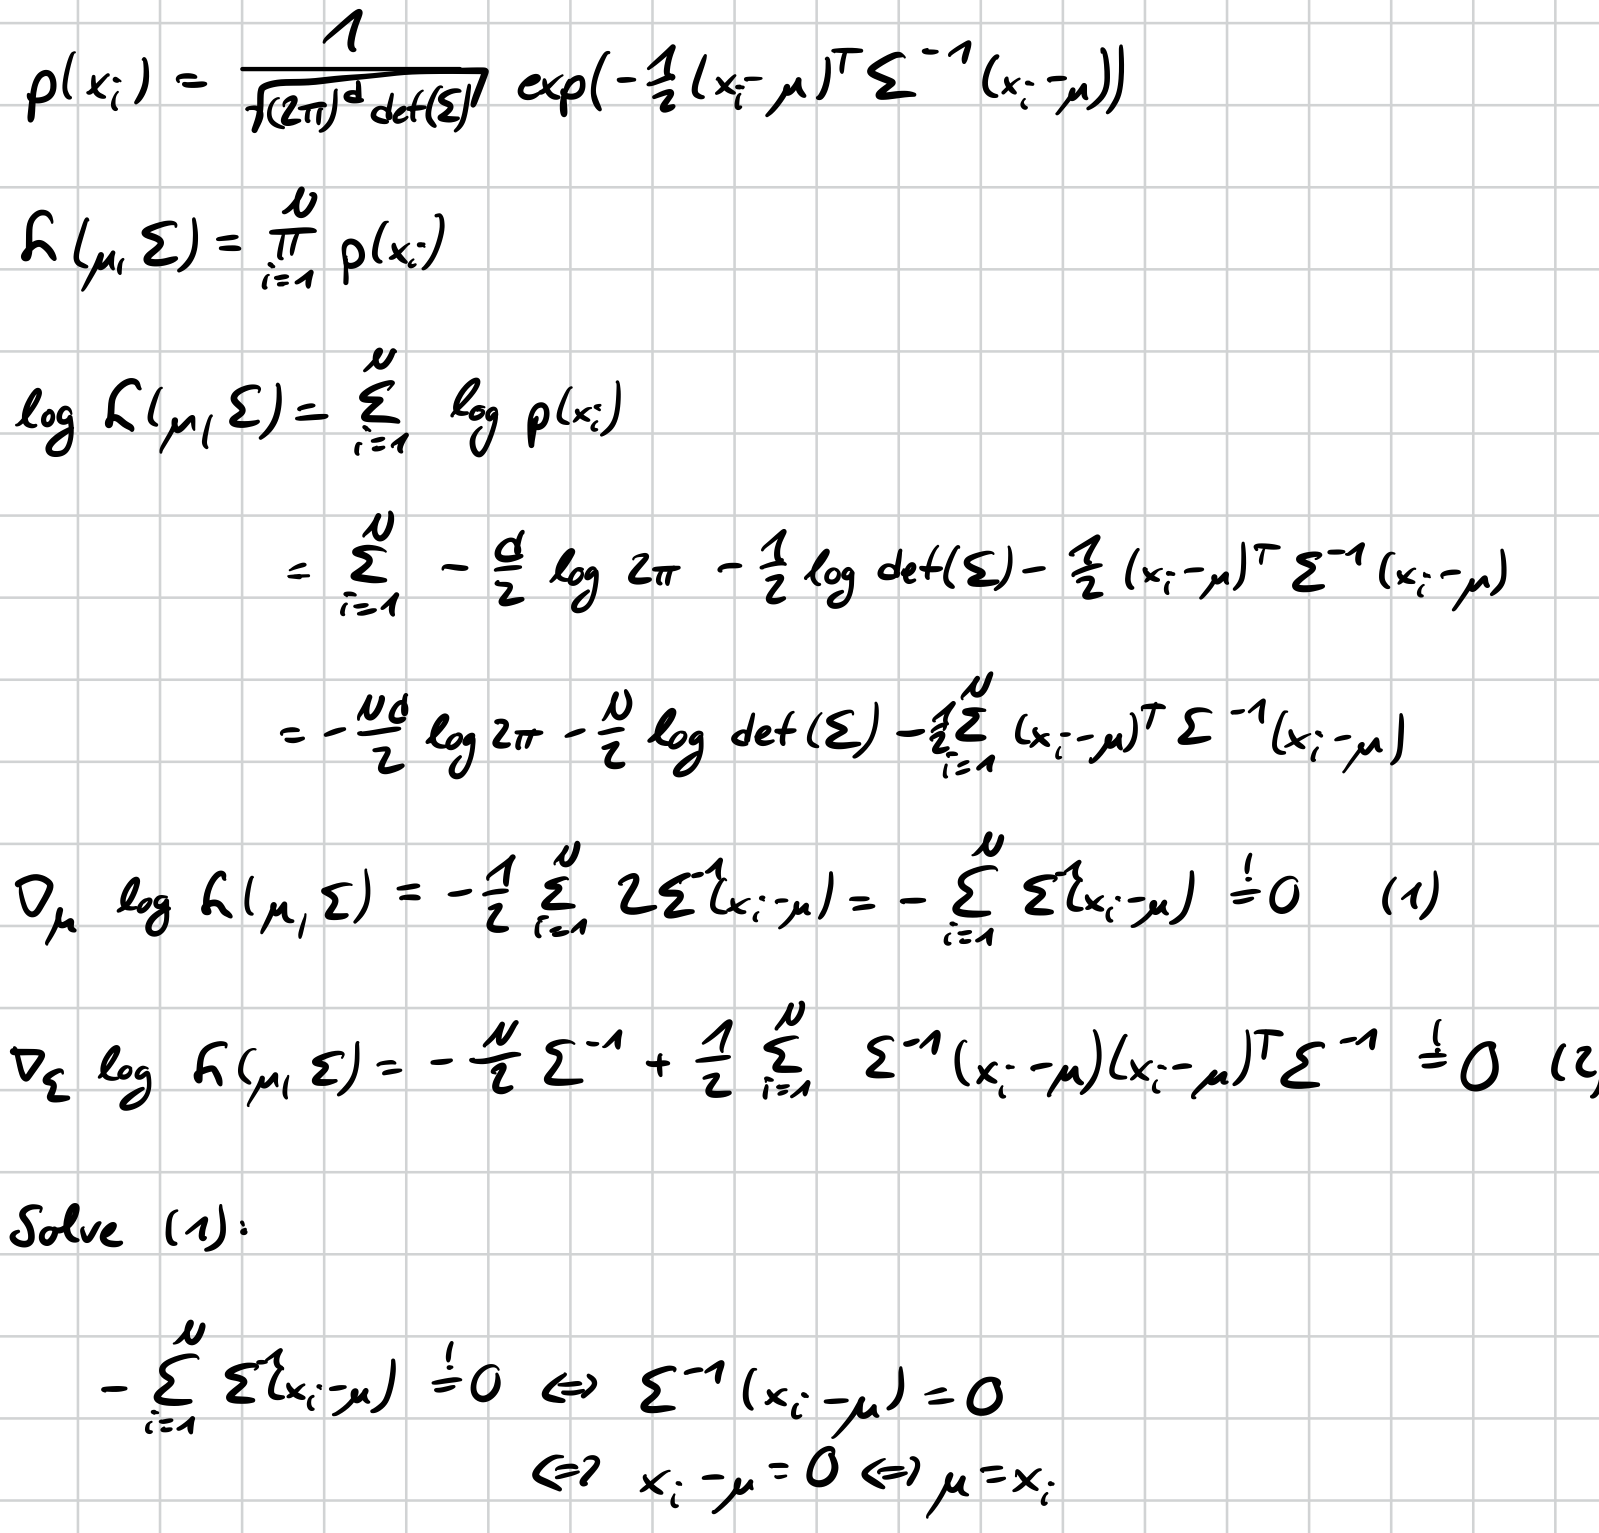 p(x_i) = 1 / √((2π)^d det(Σ)) exp(-1/2 (x_i - μ)^T Σ^-1 (x_i - μ))
L(μ, Σ) = ∏_{i=1}^N p(x_i)
log L(μ, Σ) = Σ_{i=1}^N log p(x_i)
= Σ_{i=1}^N - d/2 log 2π - 1/2 log det(Σ) - 1/2 (x_i - μ)^T Σ^-1 (x_i - μ)
= - Nd/2 log 2π - N/2 log det(Σ) - 1/2 Σ_{i=1}^N (x_i - μ)^T Σ^-1 (x_i - μ)
∇_μ log L(μ, Σ) = - 1/2 Σ_{i=1}^N 2Σ^-1(x_i - μ) = - Σ_{i=1}^N Σ^-1(x_i - μ) =! 0 (1)
∇_Σ log L(μ, Σ) = - N/2 Σ^-1 + 1/2 Σ_{i=1}^N Σ^-1 (x_i - μ)(x_i - μ)^T Σ^-1 =! 0 (2)
Solve (1):
- Σ_{i=1}^N Σ^-1(x_i - μ) =! 0 ⇔ Σ^-1 (x_i - μ) = 0
⇔ x_i - μ = 0 ⇔ μ = x_i